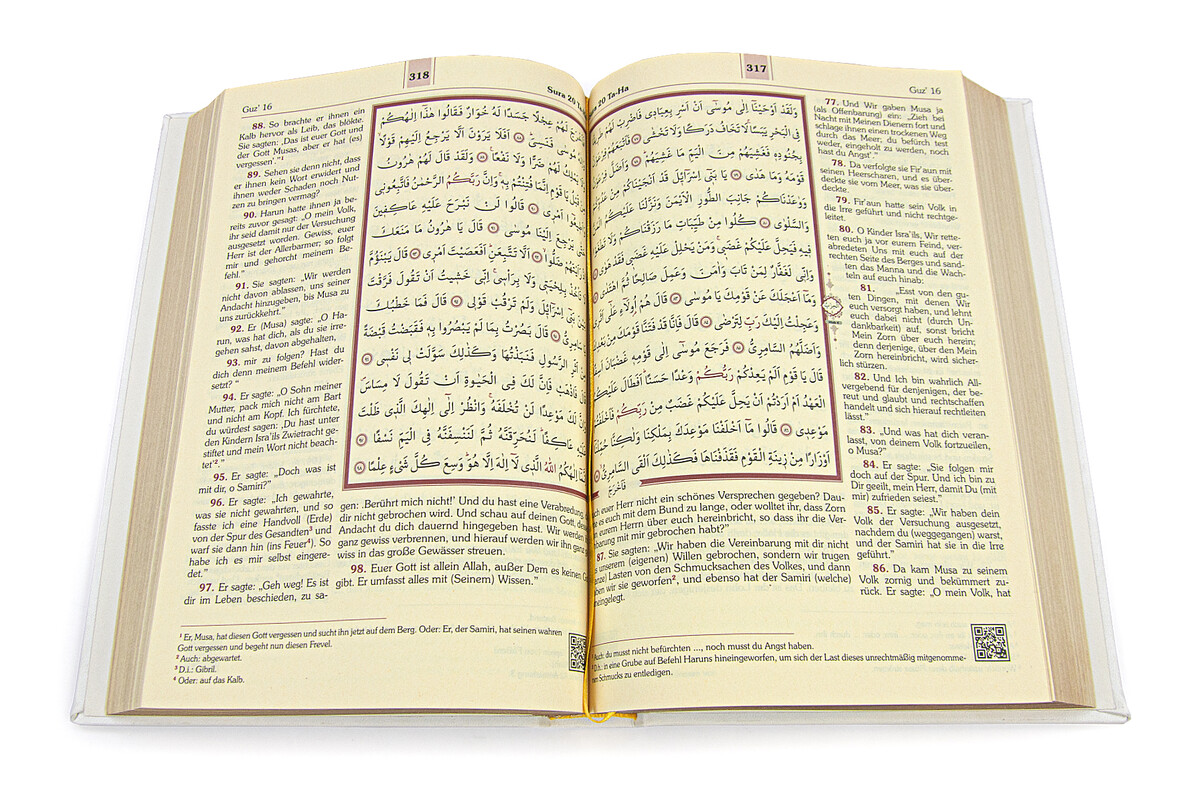 317
Sura 20 Ta-Ha
Guz' 16
وَلَقَدْ اَوْحَيْنَٓا اِلٰى مُوسٰٓى اَنْ اَسْرِ بِعِبَادٖى فَاضْرِبْ لَهُمْ
فِى الْبَحْرِ يَبَسًا لَا تَخَافُ دَرَكًا وَلَا تَخْشٰى ٧٧ فَاَتْبَعَهُمْ
بِجُنُودِهٖ فَغَشِيَهُمْ مِنَ الْيَمِّ مَا غَشِيَهُمْ ٧٨ وَاَضَلَّ
قَوْمَهُ وَمَا هَدٰى ٧٩ يَا بَنٖٓى اِسْرَٓائٖلَ قَدْ اَنْجَيْنَاكُمْ مِنْ
وَوٰعَدْنَاكُمْ جَانِبَ الطُّورِ الْاَيْمَنَ وَنَزَّلْنَا عَلَيْكُمُ
وَالسَّلْوٰى ٨٠ كُلُوا مِنْ طَيِّبَاتِ مَا رَزَقْنَاكُمْ وَلَا
فٖيهِ فَيَحِلَّ عَلَيْكُمْ غَضَبٖى وَمَنْ يَحْلِلْ عَلَيْهِ غَضَبٖى فَقَدْ هَوٰى
وَاِنّٖى لَغَفَّارٌ لِمَنْ تَابَ وَاٰمَنَ وَعَمِلَ صَالِحًا ثُمَّ اهْتَدٰى
وَمَٓا اَعْجَلَكَ عَنْ قَوْمِكَ يَا مُوسٰى ٨٣ قَالَ هُمْ اُولَٓاءِ عَلٰٓى
وَعَجِلْتُ اِلَيْكَ رَبِّ لِتَرْضٰى ٨٤ قَالَ فَاِنَّا قَدْ فَتَنَّا قَوْمَكَ مِنْ بَعْدِكَ
وَاَضَلَّهُمُ السَّامِرِىُّ ٨٥ فَرَجَعَ مُوسٰٓى اِلٰى قَوْمِهٖ غَضْبَانَ
قَالَ يَا قَوْمِ اَلَمْ يَعِدْكُمْ رَبُّكُمْ وَعْدًا حَسَنًا اَفَطَالَ عَلَيْكُمُ
الْعَهْدُ اَمْ اَرَدْتُمْ اَنْ يَحِلَّ عَلَيْكُمْ غَضَبٌ مِنْ رَبِّكُمْ
مَوْعِدٖى ٨٦ قَالُوا مَٓا اَخْلَفْنَا مَوْعِدَكَ بِمَلْكِنَا وَلٰكِنَّا
اَوْزَارًا مِنْ زٖينَةِ الْقَوْمِ فَقَذَفْنَاهَا فَكَذٰلِكَ اَلْقَى السَّامِرِىُّ ٨٧
فَاَخْرَجَ
77. Und Wir gaben Musa ja
(als Offenbarung) ein: „Zieh bei
Nacht mit Meinen Dienern fort und
schlage ihnen einen trockenen Weg
durch das Meer; du befürch test
weder, eingeholt zu werden, noch
hast du Angst¹.“
78. Da verfolgte sie Fir'aun mit
seinen Heerscharen, und es über-
deckte sie vom Meer, was sie über-
deckte.
79. Fir'aun hatte sein Volk in
die Irre geführt und nicht rechtge-
leitet.
80. O Kinder Isra'ils, Wir rette-
ten euch ja vor eurem Feind, ver-
abredeten Uns mit euch auf der
rechten Seite des Berges und sand-
ten das Manna und die Wach-
teln auf euch hinab:
81. „Esst von den gu-
ten Dingen, mit denen Wir
euch versorgt haben, und lehnt
euch dabei nicht (durch Un-
dankbarkeit) auf, sonst bricht
Mein Zorn über euch herein;
denn derjenige, über den Mein
Zorn hereinbricht, wird sicher-
lich stürzen.
82. Und Ich bin wahrlich All-
vergebend für denjenigen, der be-
reut und glaubt und rechtschaffen
handelt und sich hierauf rechtleiten
lässt.“
83. „Und was hat dich veran-
lasst, von deinem Volk fortzueilen,
o Musa?“
84. Er sagte: „Sie folgen mir
doch auf der Spur. Und ich bin zu
Dir geeilt, mein Herr, damit Du (mit
mir) zufrieden seiest.“
85. Er sagte: „Wir haben dein
Volk der Versuchung ausgesetzt,
nachdem du (weggegangen) warst,
und der Samiri hat sie in die Irre
geführt.“
86. Da kam Musa zu seinem
Volk zornig und bekümmert zu-
rück. Er sagte: „O mein Volk, hat
euch euer Herr nicht ein schönes Versprechen gegeben? Dau-
erte es euch mit dem Bund zu lange, oder wolltet ihr, dass Zorn
von eurem Herrn über euch hereinbricht, so dass ihr die Ver-
einbarung mit mir gebrochen habt?“
87. Sie sagten: „Wir haben die Vereinbarung mit dir nicht
aus unserem (eigenen) Willen gebrochen, sondern wir trugen
(ganze) Lasten von den Schmucksachen des Volkes, und dann
haben wir sie geworfen², und ebenso hat der Samiri (welche)
hineingelegt.
¹ Auch: du musst nicht befürchten ..., noch musst du Angst haben.
² D.h.: in eine Grube auf Befehl Haruns hineingeworfen, um sich der Last dieses unrechtmäßig mitgenomme-
nen Schmucks zu entledigen.
318
Guz' 16
Sura 20 Ta
لَهُمْ عِجْلًا جَسَدًا لَهُ خُوَارٌ فَقَالُوا هٰذَٓا اِلٰهُكُمْ
مُوسٰى فَنَسِىَ ٨٨ اَفَلَا يَرَوْنَ اَلَّا يَرْجِعُ اِلَيْهِمْ قَوْلًا
لَهُمْ ضَرًّا وَلَا نَفْعًا ٨٩ وَلَقَدْ قَالَ لَهُمْ هٰرُونُ
قَبْلُ يَا قَوْمِ اِنَّمَا فُتِنْتُمْ بِهٖ وَاِنَّ رَبَّكُمُ الرَّحْمٰنُ فَاتَّبِعُونٖى
اَمْرٖى ٩٠ قَالُوا لَنْ نَبْرَحَ عَلَيْهِ عَاكِفٖينَ
يَرْجِعَ اِلَيْنَا مُوسٰى ٩١ قَالَ يَا هٰرُونُ مَا مَنَعَكَ
رَاَيْتَهُمْ ضَلُّوا ٩٢ اَلَّا تَتَّبِعَنِ اَفَعَصَيْتَ اَمْرٖى ٩٣ قَالَ يَبْنَؤُمَّ
تَأْخُذْ بِلِحْيَتٖى وَلَا بِرَأْسٖى اِنّٖى خَشٖيتُ اَنْ تَقُولَ فَرَّقْتَ
بَنٖٓى اِسْرَٓائٖلَ وَلَمْ تَرْقُبْ قَوْلٖى ٩٤ قَالَ فَمَا خَطْبُكَ
٩٥ قَالَ بَصُرْتُ بِمَا لَمْ يَبْصُرُوا بِهٖ فَقَبَضْتُ قَبْضَةً
مِنْ اَثَرِ الرَّسُولِ فَنَبَذْتُهَا وَكَذٰلِكَ سَوَّلَتْ لٖى نَفْسٖى ٩٦
فَاذْهَبْ فَاِنَّ لَكَ فِى الْحَيٰوةِ اَنْ تَقُولَ لَا مِسَاسَ
لَكَ مَوْعِدًا لَنْ تُخْلَفَهُ وَانْظُرْ اِلٰٓى اِلٰهِكَ الَّذٖى ظَلْتَ
عَاكِفًا لَنُحَرِّقَنَّهُ ثُمَّ لَنَنْسِفَنَّهُ فِى الْيَمِّ نَسْفًا ٩٧
اِلٰهُكُمُ اللّٰهُ الَّذٖى لَٓا اِلٰهَ اِلَّا هُوَ وَسِعَ كُلَّ شَىْءٍ عِلْمًا ٩٨
88. So brachte er ihnen ein
Kalb hervor als Leib, das blökte.
Sie sagten: ‚Das ist euer Gott und
der Gott Musas, aber er hat (es)
vergessen‘.“¹
89. Sehen sie denn nicht, dass
er ihnen kein Wort erwidert und
ihnen weder Schaden noch Nut-
zen zu bringen vermag?
90. Harun hatte ihnen ja be-
reits zuvor gesagt: „O mein Volk,
ihr seid damit nur der Versuchung
ausgesetzt worden. Gewiss, euer
Herr ist der Allerbarmer; so folgt
mir und gehorcht meinem Be-
fehl.“
91. Sie sagten: „Wir werden
nicht davon ablassen, uns seiner
Andacht hinzugeben, bis Musa zu
uns zurückkehrt.“
92. Er (Musa) sagte: „O Ha-
run, was hat dich, als du sie irre-
gehen sahst, davon abgehalten,
93. mir zu folgen? Hast du
dich denn meinem Befehl wider-
setzt? “
94. Er sagte: „O Sohn meiner
Mutter, pack mich nicht am Bart
und nicht am Kopf. Ich fürchtete,
du würdest sagen: ‚Du hast unter
den Kindern Isra'ils Zwietracht ge-
stiftet und mein Wort nicht beach-
tet‘².“
95. Er sagte: „Doch was ist
mit dir, o Samiri?“
96. Er sagte: „Ich gewahrte,
was sie nicht gewahrten, und so
fasste ich eine Handvoll (Erde)
von der Spur des Gesandten³ und
warf sie dann hin (ins Feuer⁴). So
habe ich es mir selbst eingere-
det.“
97. Er sagte: „Geh weg! Es ist
dir im Leben beschieden, zu sa-
gen: ‚Berührt mich nicht!‘ Und du hast eine Verabredung,
dir nicht gebrochen wird. Und schau auf deinen Gott, de
Andacht du dich dauernd hingegeben hast. Wir werden
ganz gewiss verbrennen, und hierauf werden wir ihn ganz
wiss in das große Gewässer streuen.
98. Euer Gott ist allein Allah, außer Dem es keinen G
gibt. Er umfasst alles mit (Seinem) Wissen.“
¹ Er, Musa, hat diesen Gott vergessen und sucht ihn jetzt auf dem Berg. Oder: Er, der Samiri, hat seinen wahren
Gott vergessen und begeht nun diesen Frevel.
² Auch: abgewartet.
³ D.i.: Gibril.
⁴ Oder: auf das Kalb.